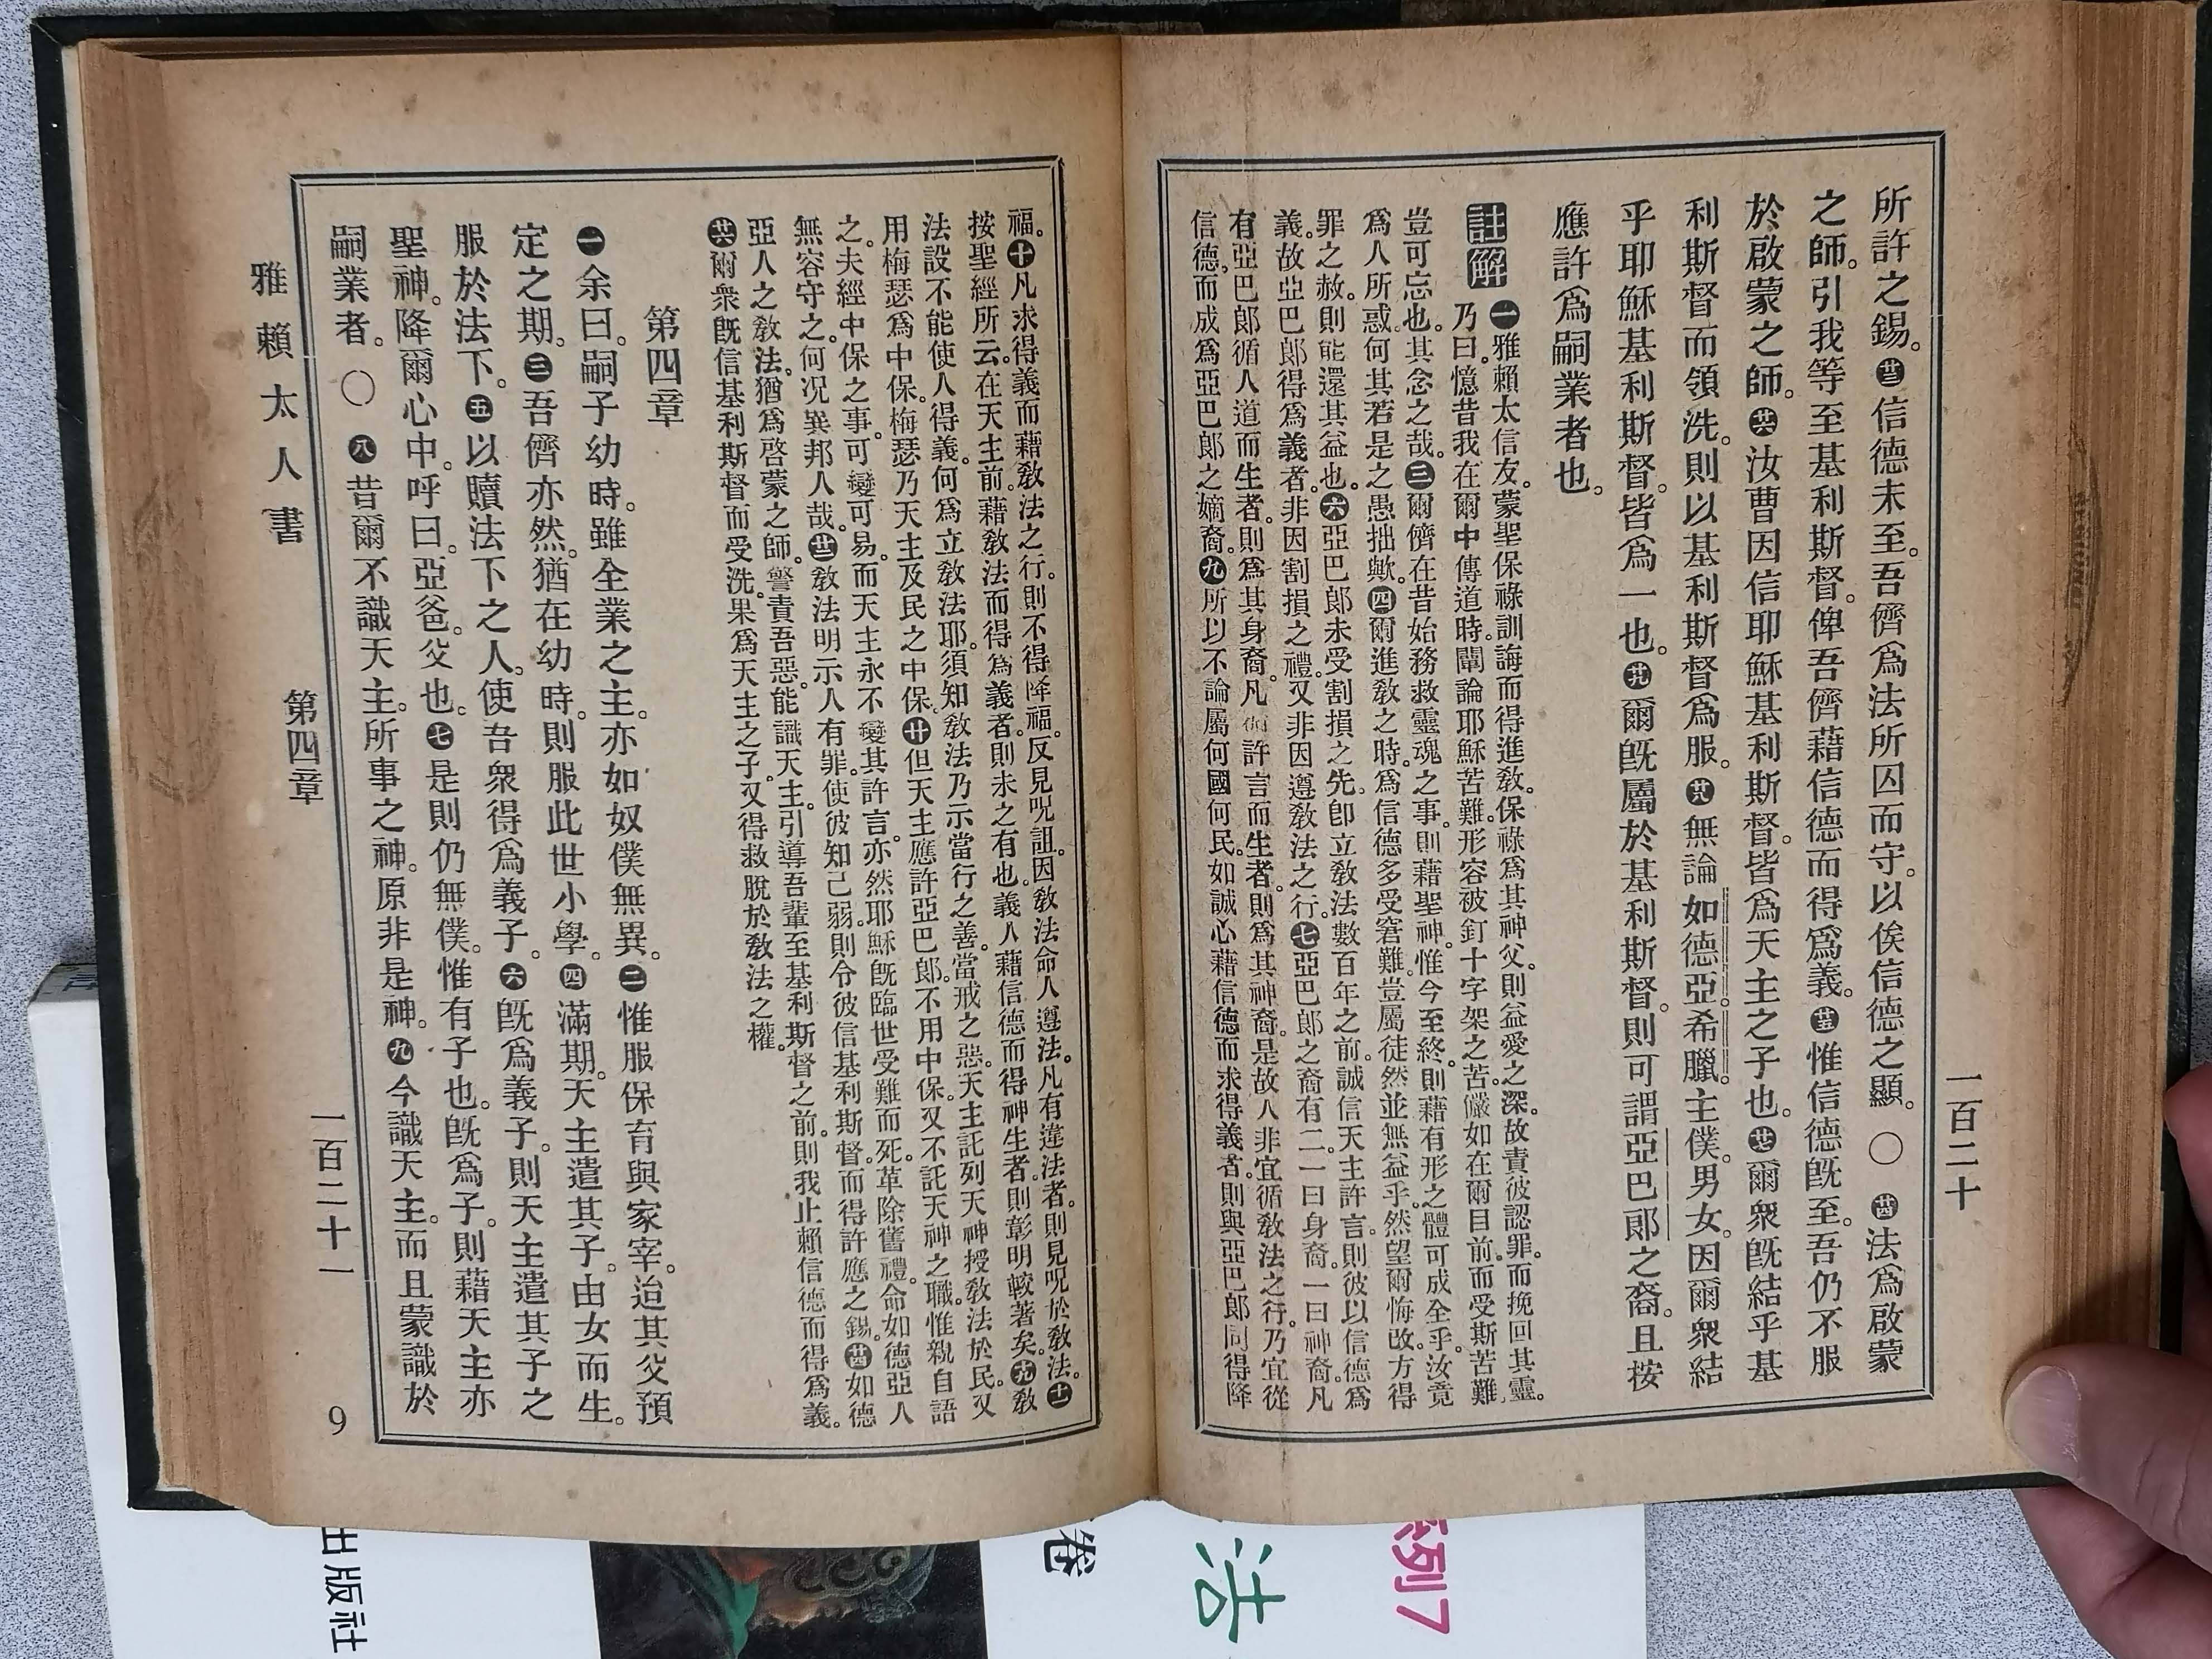 一百二十
所許之錫。㉓信德未至。吾儕爲法所囚而守。以俟信德之顯。〇㉔法爲啟蒙
之師。引我等至基利斯督。俾吾儕藉信德而得爲義。㉕惟信德旣至。吾仍不服
於啟蒙之師。㉖汝曹因信耶穌基利斯督。皆爲天主之子也。㉗爾衆旣結乎基
利斯督而領洗。則以基利斯督爲服。㉘無論如德亞。希臘。主僕。男女。因爾衆結
乎耶穌基利斯督。皆爲一也。㉙爾旣屬於基利斯督。則可謂亞巴郞之裔。且按
應許爲嗣業者也。
註解 一雅賴太信友。蒙聖保祿訓誨而得進敎。保祿爲其神父。則益愛之深。故責彼認罪。而挽回其靈。
乃曰。憶昔我在爾中傳道時。闡論耶穌苦難。形容被釘十字架之苦。儼如在爾目前。而受斯苦難。
豈可忘也。其念之哉。三爾儕在昔始務救靈魂之事。則藉聖神。惟今至終。則藉有形之體可成全乎。汝竟
爲人所惑。何其若是之愚拙歟。四爾進敎之時。爲信德多受窘難。豈屬徒然並無益乎。然望爾悔改。方得
罪之赦。則能還其益也。六亞巴郞未受割損之先。卽立敎法數百年之前。誠信天主許言。則彼以信德爲
義。故亞巴郞得爲義者。非因割損之禮。又非因遵敎法之行。七亞巴郞之裔有二。一曰身裔。一曰神裔。凡
有亞巴郞循人道而生者。則爲其身裔。凡 許言而生者。則爲其神裔。是故人非宜循敎法之行。乃宜從
信德。而成爲亞巴郞之嫡裔。九所以不論屬何國何民。如誠心藉信德而求得義者。則與亞巴郞同得降
福。十凡求得義而藉敎法之行。則不得降福。反見呪詛。因敎法命人遵法。凡有違法者。則見呪於敎法。十一
按聖經所云。在天主前。藉敎法而得爲義者。則未之有也。義人藉信德而得神生者。則彰明較著矣。十九敎
法設不能使人得義。何爲立敎法耶。須知敎法乃示當行之善。當戒之惡。天主託列天神授敎法於民。又
用梅瑟爲中保。梅瑟乃天主及民之中保。廿但天主應許亞巴郞。不用中保。又不託天神之職。惟親自語
之。夫經中保之事。可變可易。而天主永不變其許言。亦然耶穌旣臨世受難而死。革除舊禮。命如德亞人
無容守之。何況異邦人哉。㉒敎法明示人有罪。使彼知己弱。則令彼信基利斯督。而得許應之錫。㉔如德
亞人之敎法。猶爲啓蒙之師。警責吾惡。能識天主。引導吾輩至基利斯督之前。則我止賴信德而得爲義。
㉖爾衆旣信基利斯督而受洗。果爲天主之子。又得救脫於敎法之權。
第四章
一余曰。嗣子幼時。雖全業之主。亦如奴僕無異。二惟服保育與家宰。迨其父預
定之期。三吾儕亦然。猶在幼時。則服此世小學。四滿期。天主遣其子。由女而生。
服於法下。五以贖法下之人。使吾衆得爲義子。六旣爲義子。則天主遣其子之
聖神。降爾心中。呼曰。亞爸。父也。七是則仍無僕。惟有子也。旣爲子。則藉天主亦
嗣業者。〇八昔爾不識天主。所事之神。原非是神。九今識天主。而且蒙識於
雅賴太人書 第四章 一百二十一
9
出版社
卷
法
系列7